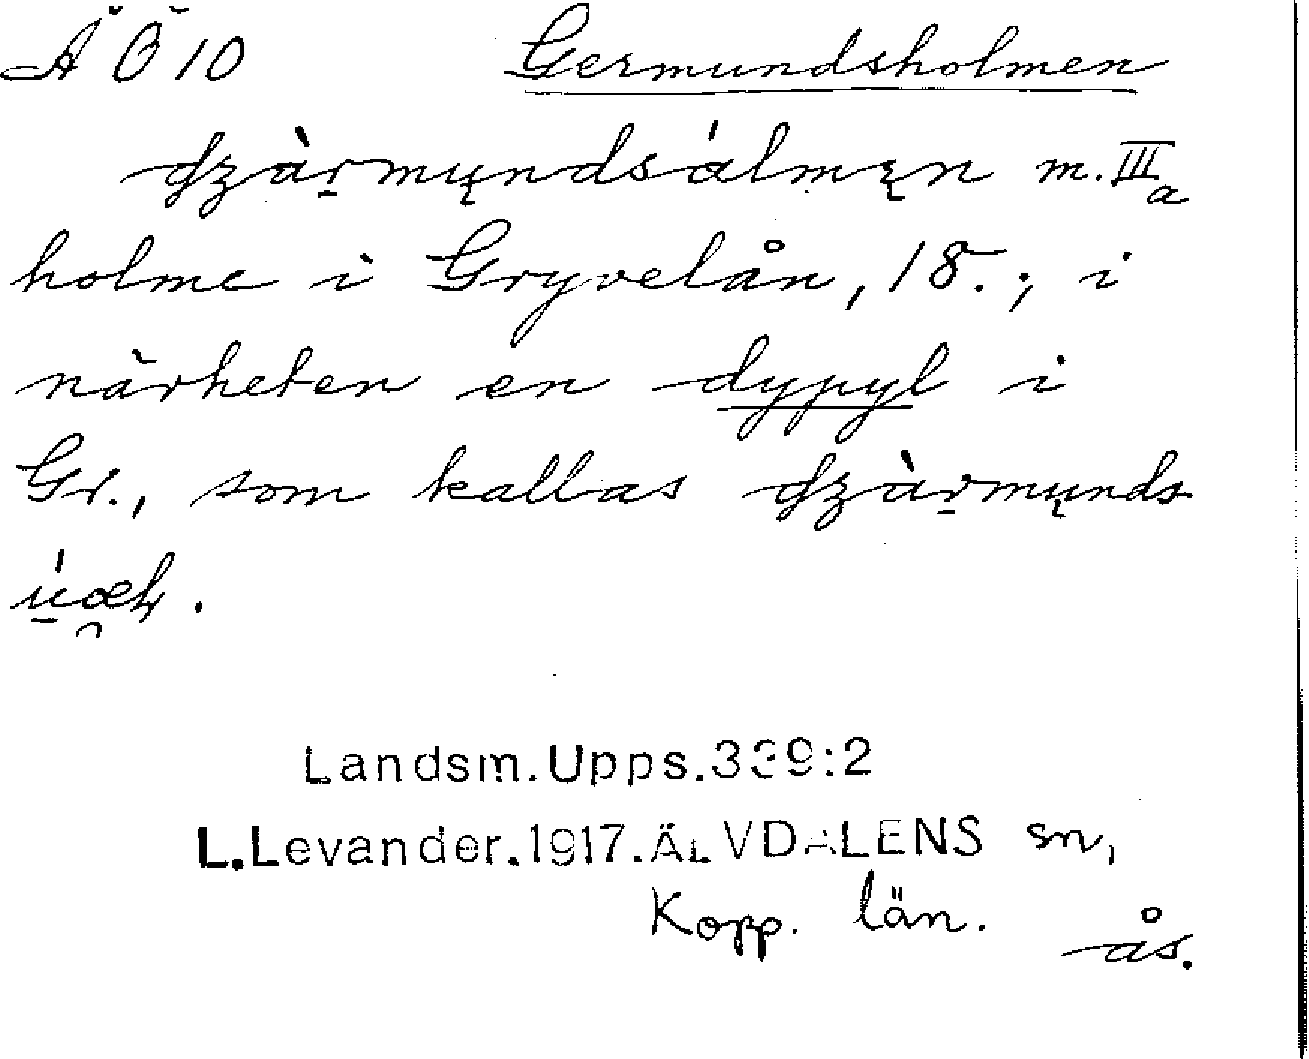 Ä Ö 10 Germundsholmen
dzàr̠mųndsálmęn m. III a
holme i Gryvelån, 18.; i
närheten en dypyl i
Gr., som kallas dzàr̠mųnds
Landsm.Upps.339:2
L.Levander.1917.ÄLVDALENS sn,
Kopp. län. ås.